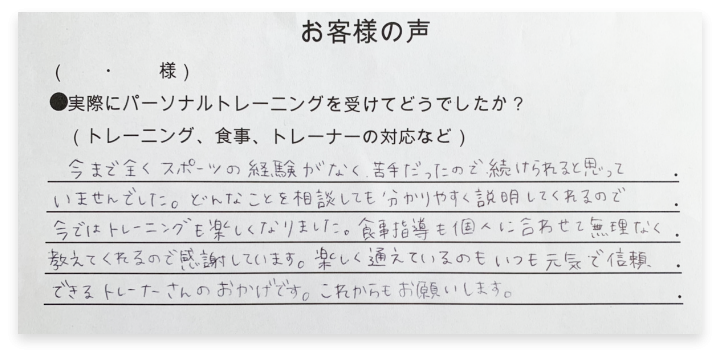 お客様の声
(　・　様)
●実際にパーソナルトレーニングを受けてどうでしたか？
(トレーニング、食事、トレーナーの対応など)
今まで全くスポーツの経験がなく、苦手だったので続けられると思って
いませんでした。どんなことを相談しても分かりやすく説明してくれるので
今ではトレーニングも楽しくなりました。食事指導も個々に合わせて無理なく
教えてくれるので感謝しています。楽しく通えているのもいつも元気で信頼
できるトレーナーさんのおかげです。これからもお願いします。